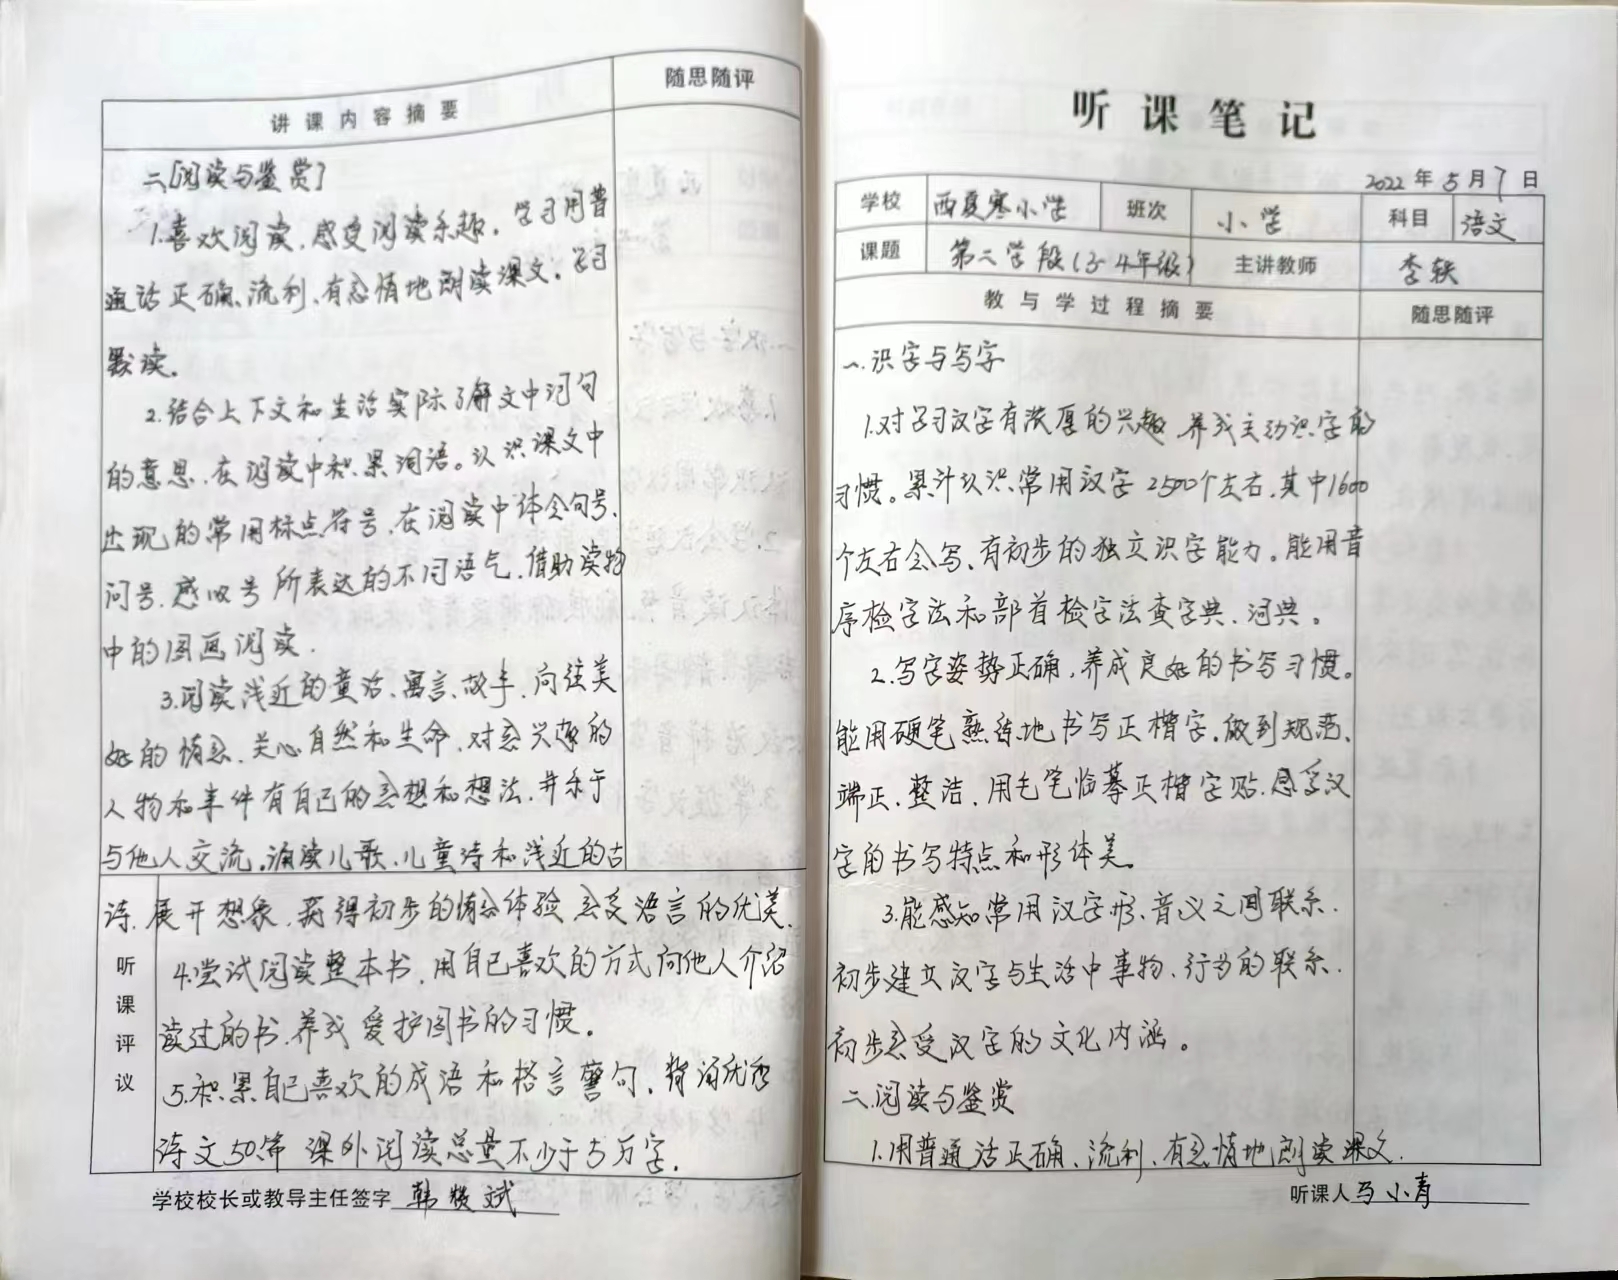 讲课内容摘要
随思随评
二[阅读与鉴赏]
1.喜欢阅读,感受阅读乐趣。学习用普
通话正确、流利、有感情地朗读课文。学习
默读。
2.结合上下文和生活实际了解文中词句
的意思,在阅读中积累词语。认识课文中
出现的常用标点符号,在阅读中体会句号、
问号、感叹号所表达的不同语气,借助读物
中的图画阅读.
3.阅读浅近的童话、寓言、故事,向往美
好的情感、关心自然和生命,对感兴趣的
人物和事件有自己的感想和想法,并乐于
与他人交流。诵读儿歌、儿童诗和浅近的古
诗,展开想象,获得初步的情感体验,感受语言的优美.
4.尝试阅读整本书,用自己喜欢的方式向他人介绍
读过的书,养成爱护图书的习惯。
5.积累自己喜欢的成语和格言警句,背诵优秀
诗文50篇 课外阅读总量不少于5万字.
听课评议
学校校长或教导主任签字 韩 斌
听课笔记
2022年5月7日
学校 西夏寒小学 班次 小学 科目 语文
课题 第二学段(3-4年级) 主讲教师 李轶
教与学过程摘要 随思随评
一.识字与写字
1.对学习汉字有浓厚的兴趣,养成主动识字的
习惯。累计认识常用汉字2500个左右,其中1600
个左右会写、有初步的独立识字能力。能用音
序检字法和部首检字法查字典、词典。
2.写字姿势正确,养成良好的书写习惯。
能用硬笔熟练地书写正楷字,做到规范、
端正、整洁、用毛笔临摹正楷字贴,感受汉
字的书写特点和形体美。
3.能感知常用汉字形、音义之间联系.
初步建立汉字与生活中事物、行为的联系.
初步感受汉字的文化内涵。
二.阅读与鉴赏
1.用普通话正确、流利、有感情地朗读课文.
听课人 马小青